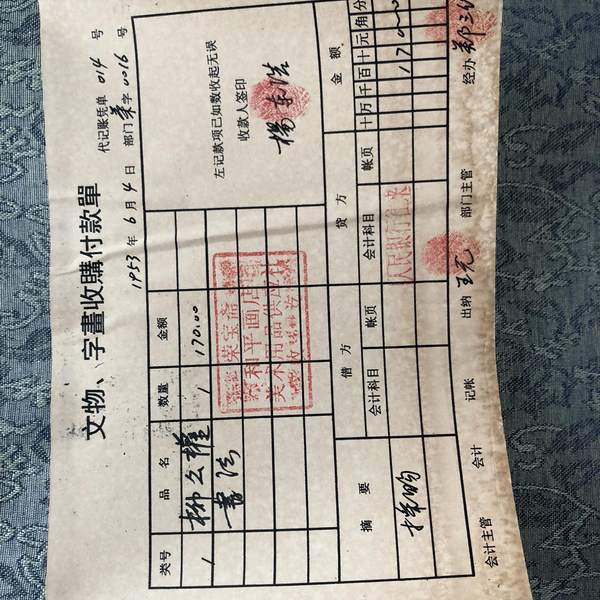 文物、字畫收購付款單
代记账凭单 014 号
1953年6月4日 部门 字0016 号
类号 品名 数量 金额
1 柳公權 1 170.00
書法
左记款项已如数收起无误
收款人签印
楊
荣宝斋
和平画店
美术用品
摘要 借方 贷方 金额
会计科目 帐页 会计科目 帐页 十万千百十元角分
17000
人民银行
会计主管 会计 记帐 出纳 王 部门主管 经办 郑